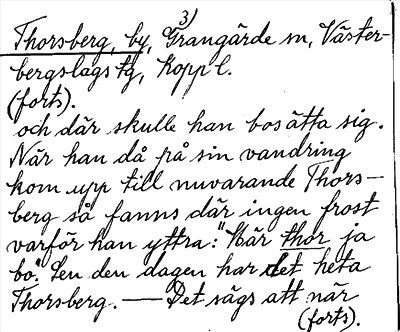 3)
Thorsberg, by, Grangärde sn, Väster-
bergslags tg, Koppl.
(forts).
och där skulle han bosätta sig.
När han då på sin vandring
kom upp till nuvarande Thors-
berg så fanns där ingen frost
varför han yttra: "Här thor ja
bo". Sen den dagen har det heta
Thorsberg. — Det sägs att när
(forts).